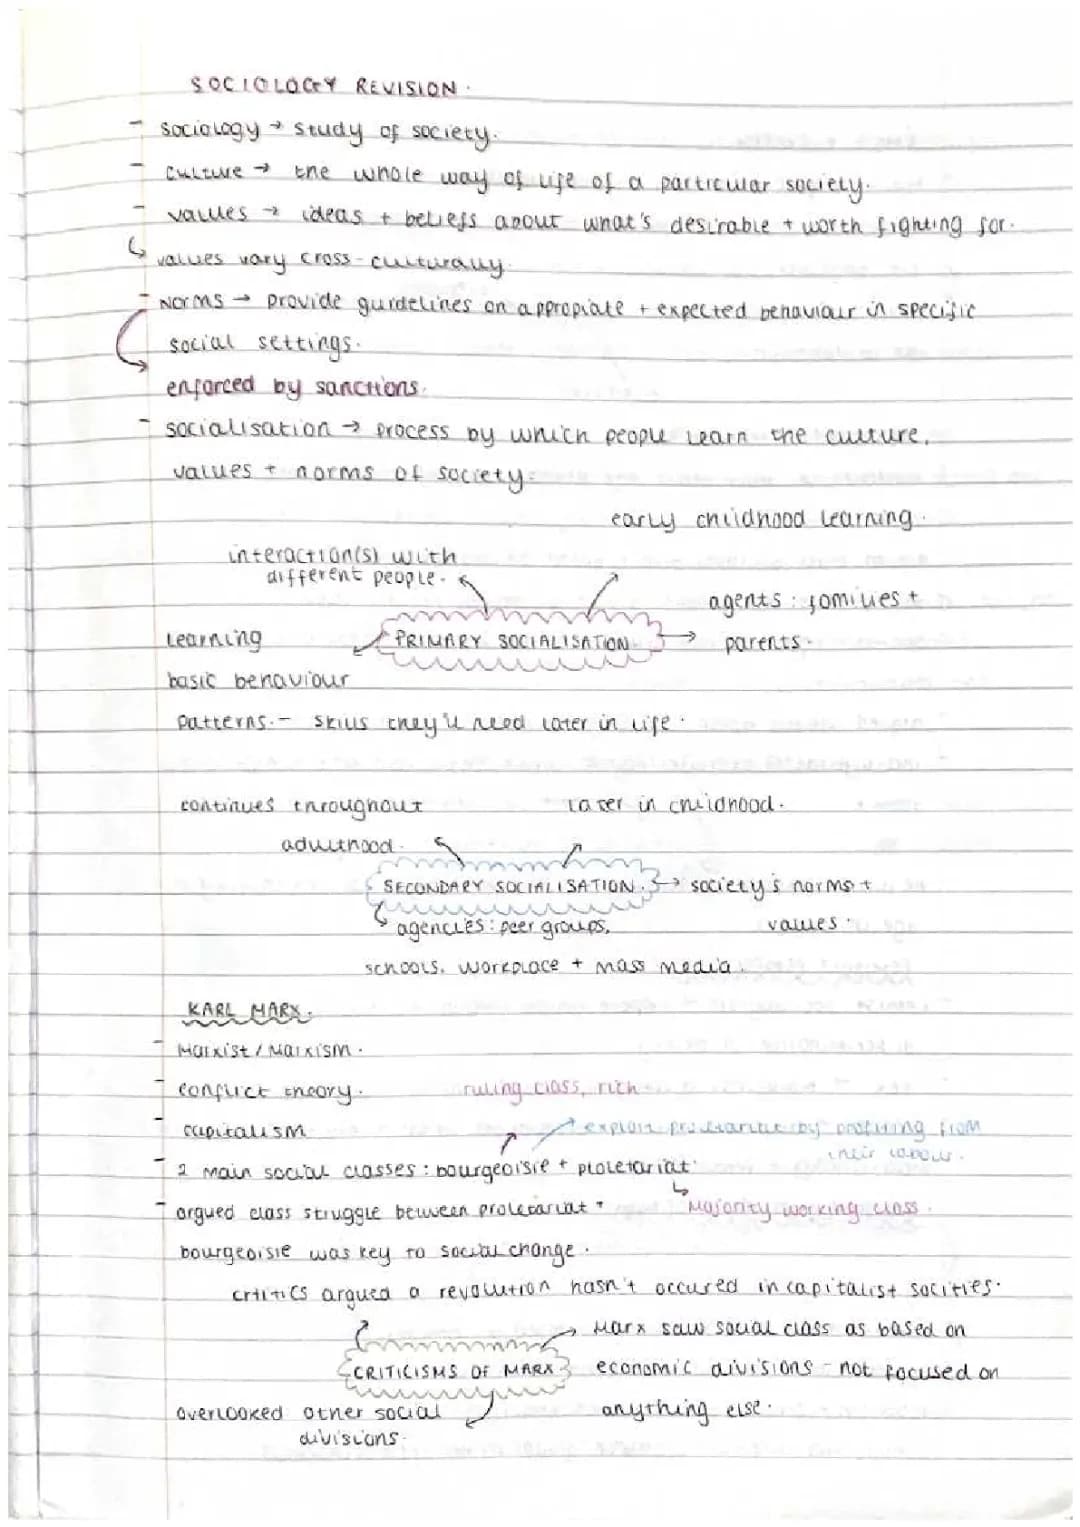 SOCIOLOGY REVISION.
- sociology → study of society.
- culture → the whole way of life of a particular society.
- values → ideas + beliefs about what's desirable + worth fighting for.
↳ values vary cross-culturally.
- Norms → provide guidelines on appropiate + expected behaviour in specific
social settings.
enforced by sanctions.
- socialisation → process by which people learn the culture,
values + norms of society.
early childhood learning.
interaction(s) with
different people.
agents: families +
parents.
PRIMARY SOCIALISATION
learning
basic behaviour
patterns. - skills they'll need later in life.
continues throughout
adulthood.
later in childhood.
SECONDARY SOCIALISATION. → society's norms +
values.
agencies: peer groups,
schools, workplace + mass media.
KARL MARX.
- Marxist / Marxism.
- conflict theory.
ruling class, rich
- capitalism
exploit proletariat by profiting from
their labour.
- 2 main social classes: bourgeoisie + proletariat.
↳ Majority working class.
- argued class struggle between proletariat +
bourgeoisie was key to social change.
critics argued a revolution hasn't occured in capitalist socities.
Marx saw social class as based on
CRITICISMS OF MARX
economic divisions - not focused on
anything else.
overlooked other social
divisions.